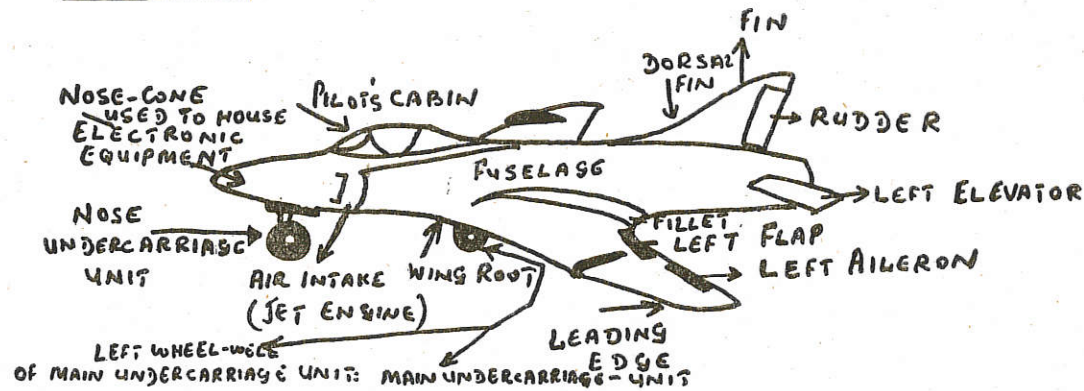 FIN
DORSAL
FIN
NOSE-CONE
USED TO HOUSE
ELECTRONIC
EQUIPMENT
PILOT'S CABIN
RUDDER
FUSELAGE
LEFT ELEVATOR
NOSE
UNDERCARRIAGE
UNIT
FILLET
LEFT FLAP
LEFT AILERON
AIR INTAKE
(JET ENGINE)
WING ROOT
LEADING
EDGE
LEFT WHEEL-WELL
OF MAIN UNDERCARRIAGE UNIT: MAIN UNDERCARRIAGE-UNIT